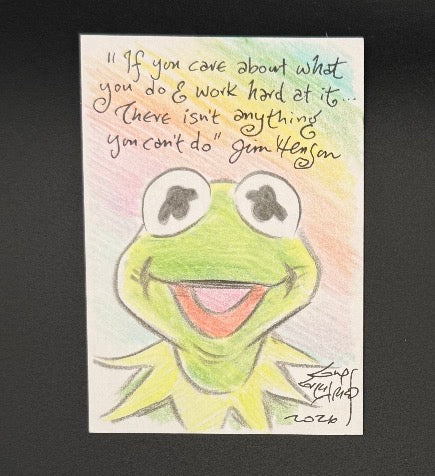 "If you care about what
you do & work hard at it...
There isn't anything
you can't do" Jim Henson
2026